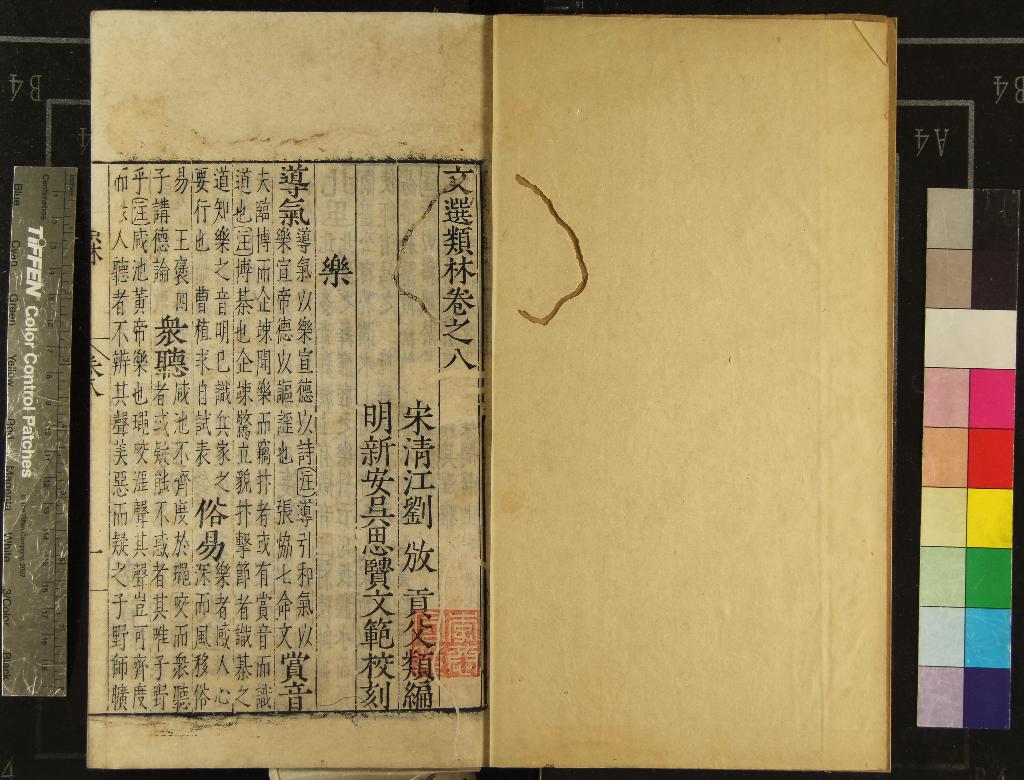 文選類林卷之八
宋清江劉 攽 貢父類編
明新安吳思賢文範校刻
樂
導氣導氣以樂宣德以詩注導引和氣以
樂宣帝德以謳謠也 張協七命文 賞音
夫臨博而企竦聞樂而竊抃者或有賞音而識
道也注博棊也企竦驚立貌抃擊節者識棊之
道知樂之音明已識兵家之
要行也 曹植求自試表 俗易深而風移俗
樂者感人心
易 王褒四
子講德論 衆聽咸池不齊度於䵷咬而衆聽
者或疑能不惑者其唯子野
乎注咸池黃帝樂也䵷咬淫聲其聲豈可齊度
而 人聽者不辨其聲美惡而疑之子野師曠
卷八
一
TIFFEN Color Control Patches
© The Tiffen Company, 2007
Centimetres
Blue
Cyan
Green
Yellow
Red
Magenta
White
3/Color
Black
B4
A4
B4